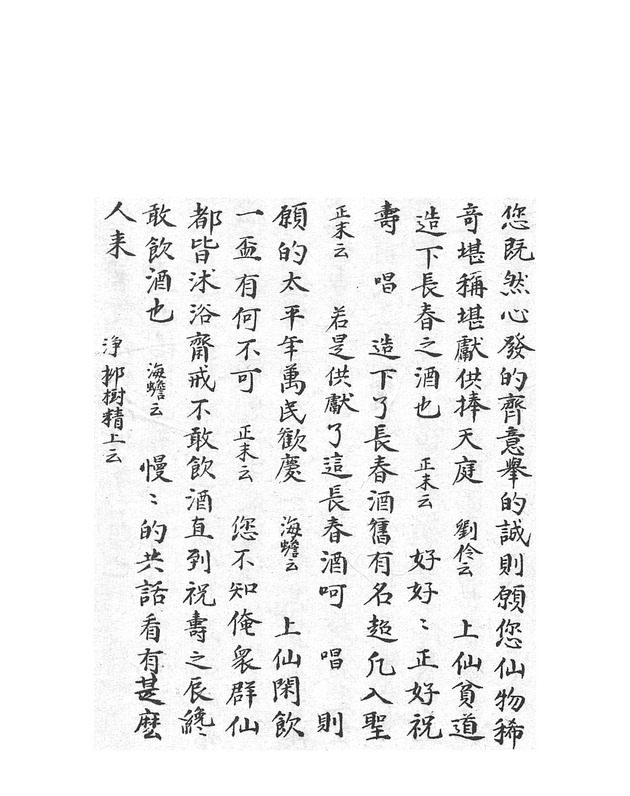 您既然心發的齊意舉的誠則願您仙物稀
奇堪稱堪獻供捧天庭 劉伶云 上仙貧道
造下長春之酒也 正末云 好好〻正好祝
壽 唱 造下了長春酒舊有名超凡入聖
正末云 若是供獻了這長春酒呵 唱 則
願的太平年萬民歡慶 海蟾云 上仙閑飲
一盃有何不可 正末云 您不知俺衆群仙
都皆沐浴齋戒不敢飲酒直到祝壽之辰纔
敢飲酒也 海蟾云 慢〻的共話看有甚麼
人来 淨柳樹精上云